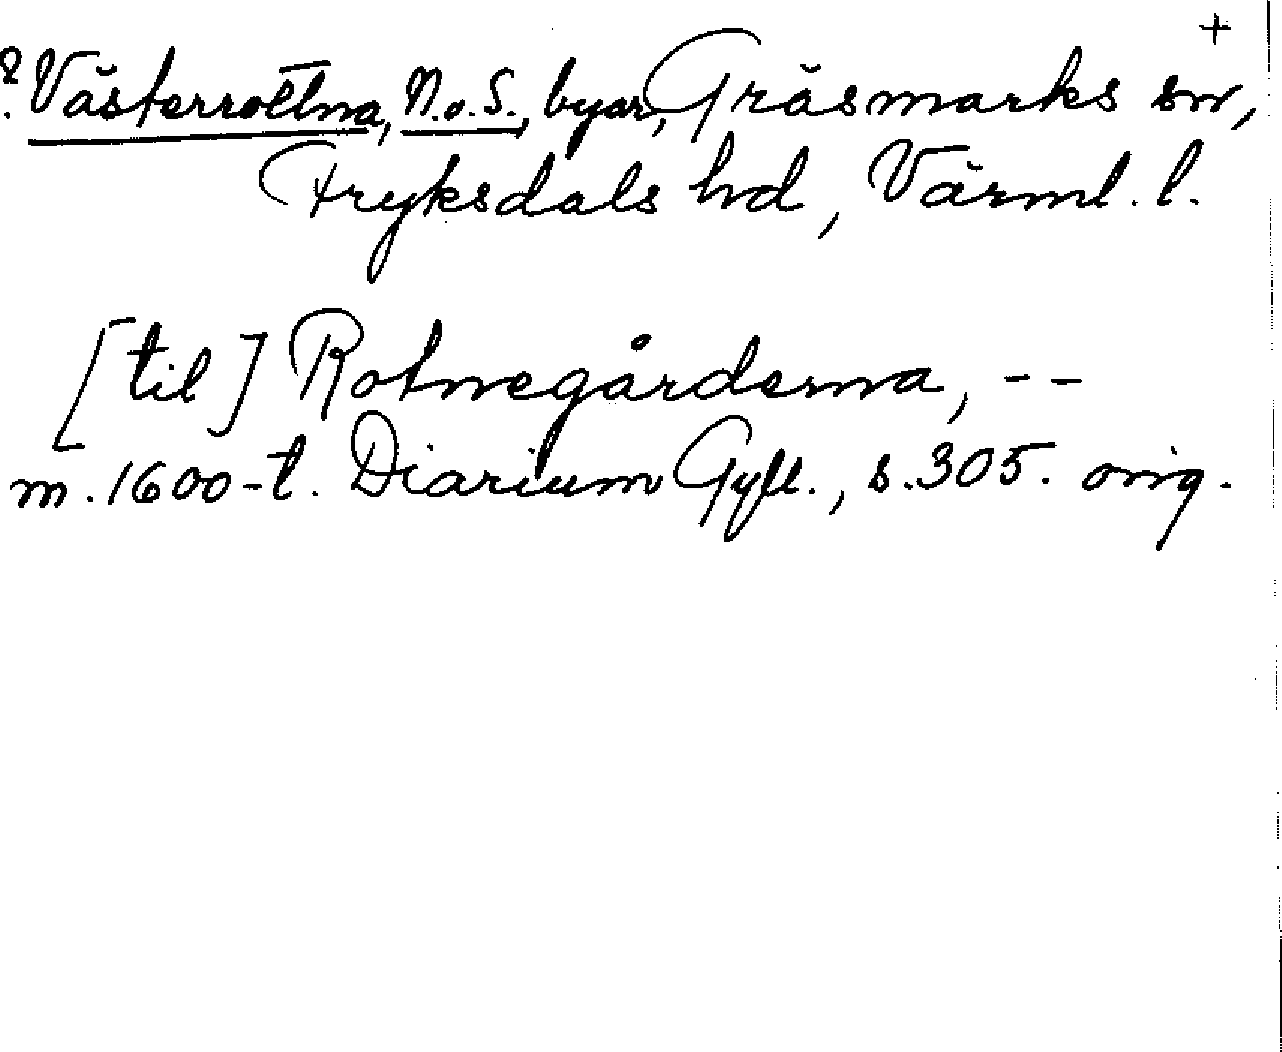 +
? Västerrottna, N. o. S., byar, Gräsmarks sn,
Fryksdals hd, Värml. l.
[til] Rotnegårderna, - -
m. 1600-t. Diarium Gyll., s. 305. orig.